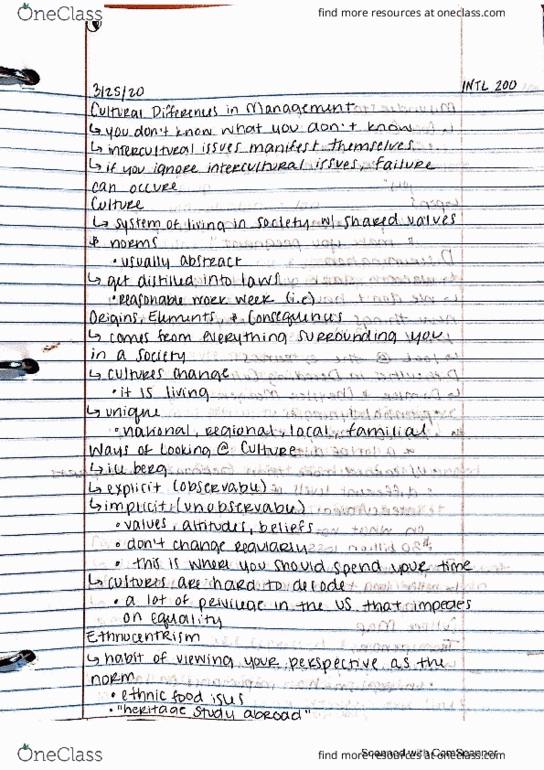 OneClass
find more resources at oneclass.com
3/25/20
INTL 200
Cultural Differences in Management
↳ you don't know what you don't know
↳ intercultural issues manifest themselves
↳ if you ignore intercultural issues, failure
can occure
Culture
↳ system of living in society w/ shared values
& norms
• usually abstract
↳ get distilled into laws
• reasonable work week (i.e)
Origins, Elements, & Consequences
↳ comes from everything surrounding you
in a society
↳ cultures change
• it is living
↳ unique
• national, regional, local, familial
Ways of Looking @ Culture
↳ ice berg
↳ explicit (observable)
↳ implicit (unobservable)
• values, attitudes, beliefs
• don't change regularly
• this is where you should spend your time
↳ cultures are hard to decode
• a lot of privilege in the US that impedes
on equality
Ethnocentrism
↳ habit of viewing your perspective as the
norm
• ethnic food isles
• "heritage study abroad"
OneClass
find more resources at oneclass.com
Scanned with CamScanner